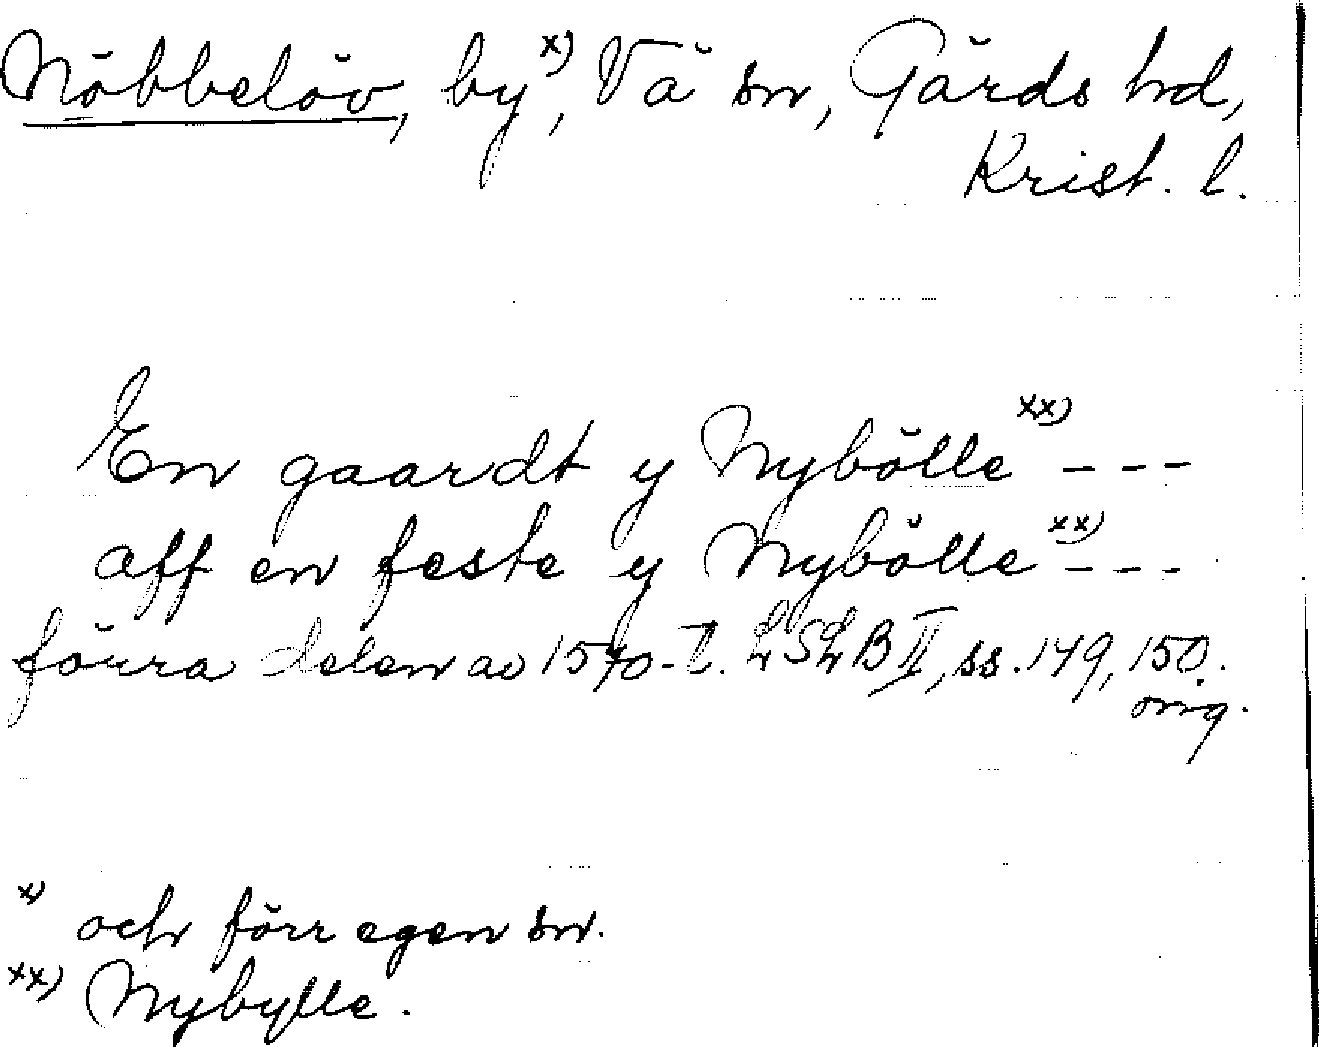 Nöbbelöv, by x), Vä sn, Gärds hd,
Krist. l.
En gaardt y Nybölle xx) ---
aff en feste y Nybölle xx) ---
förra delen av 1570-t. LSLB II, ss. 149, 150.
orig.
x) och förr egen sn.
xx) Nybylle.